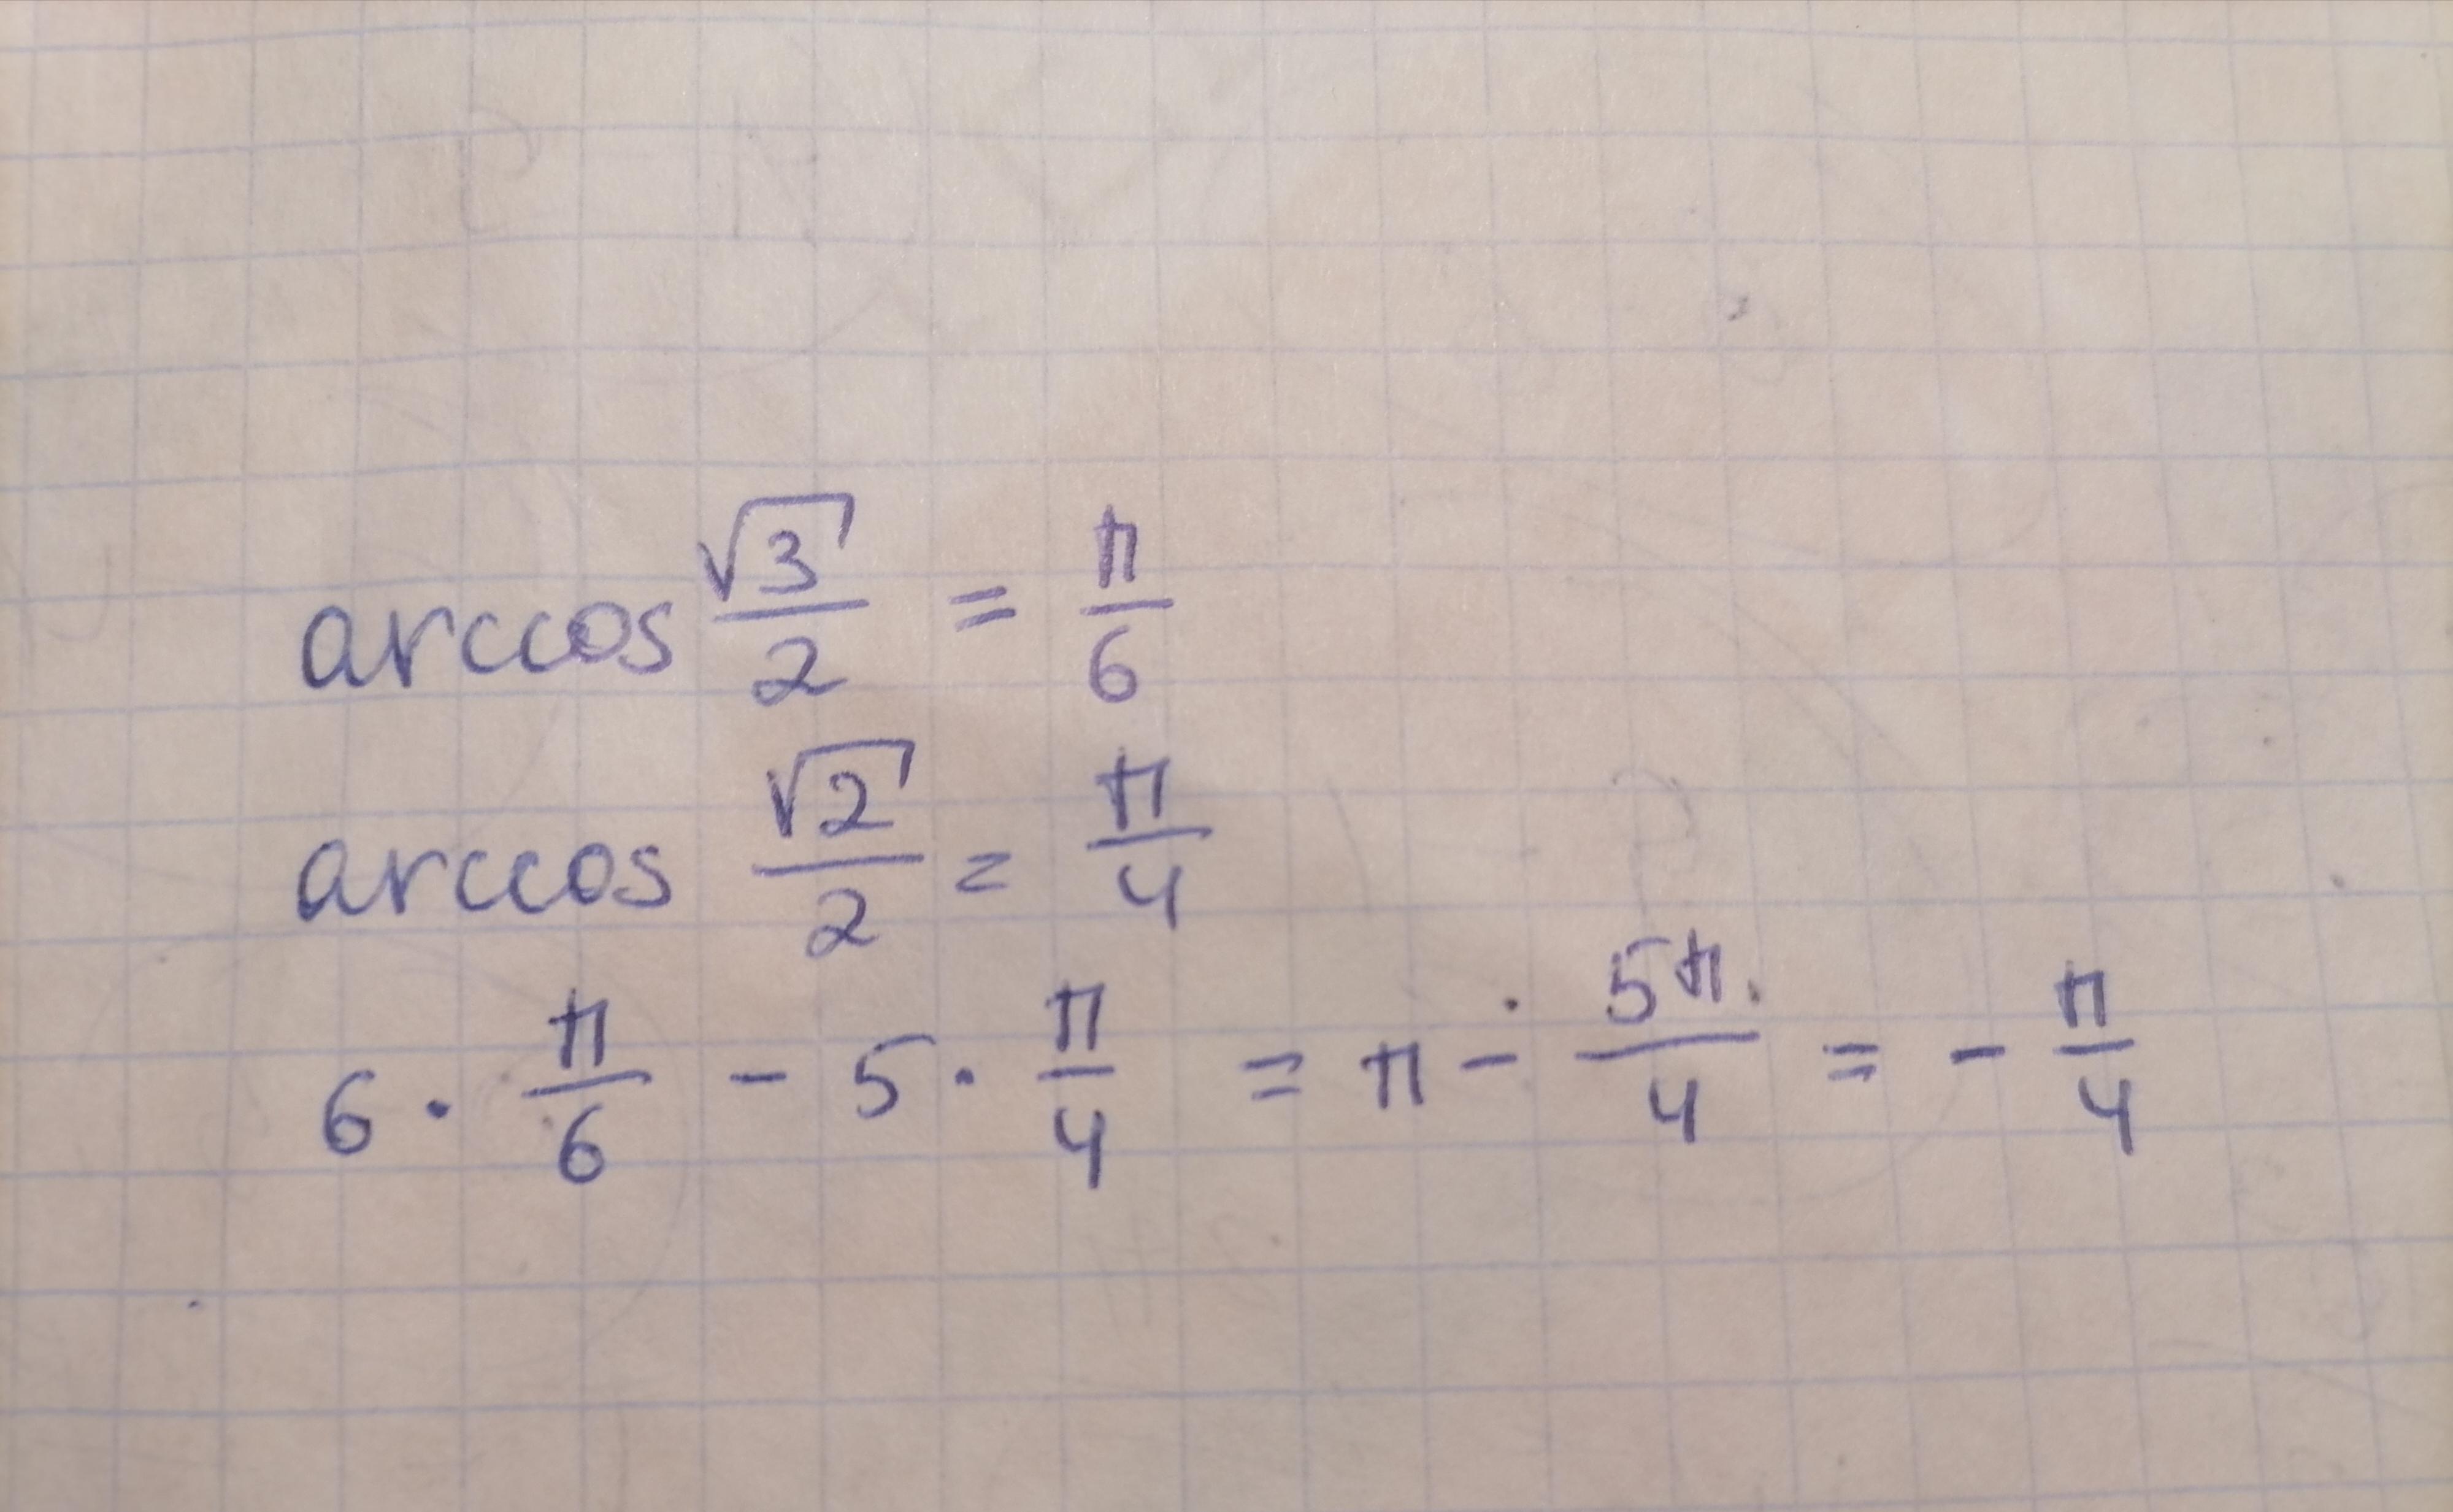 arccos √3/2 = π/6
arccos √2/2 = π/4
6 · π/6 - 5 · π/4 = π - 5π/4 = - π/4